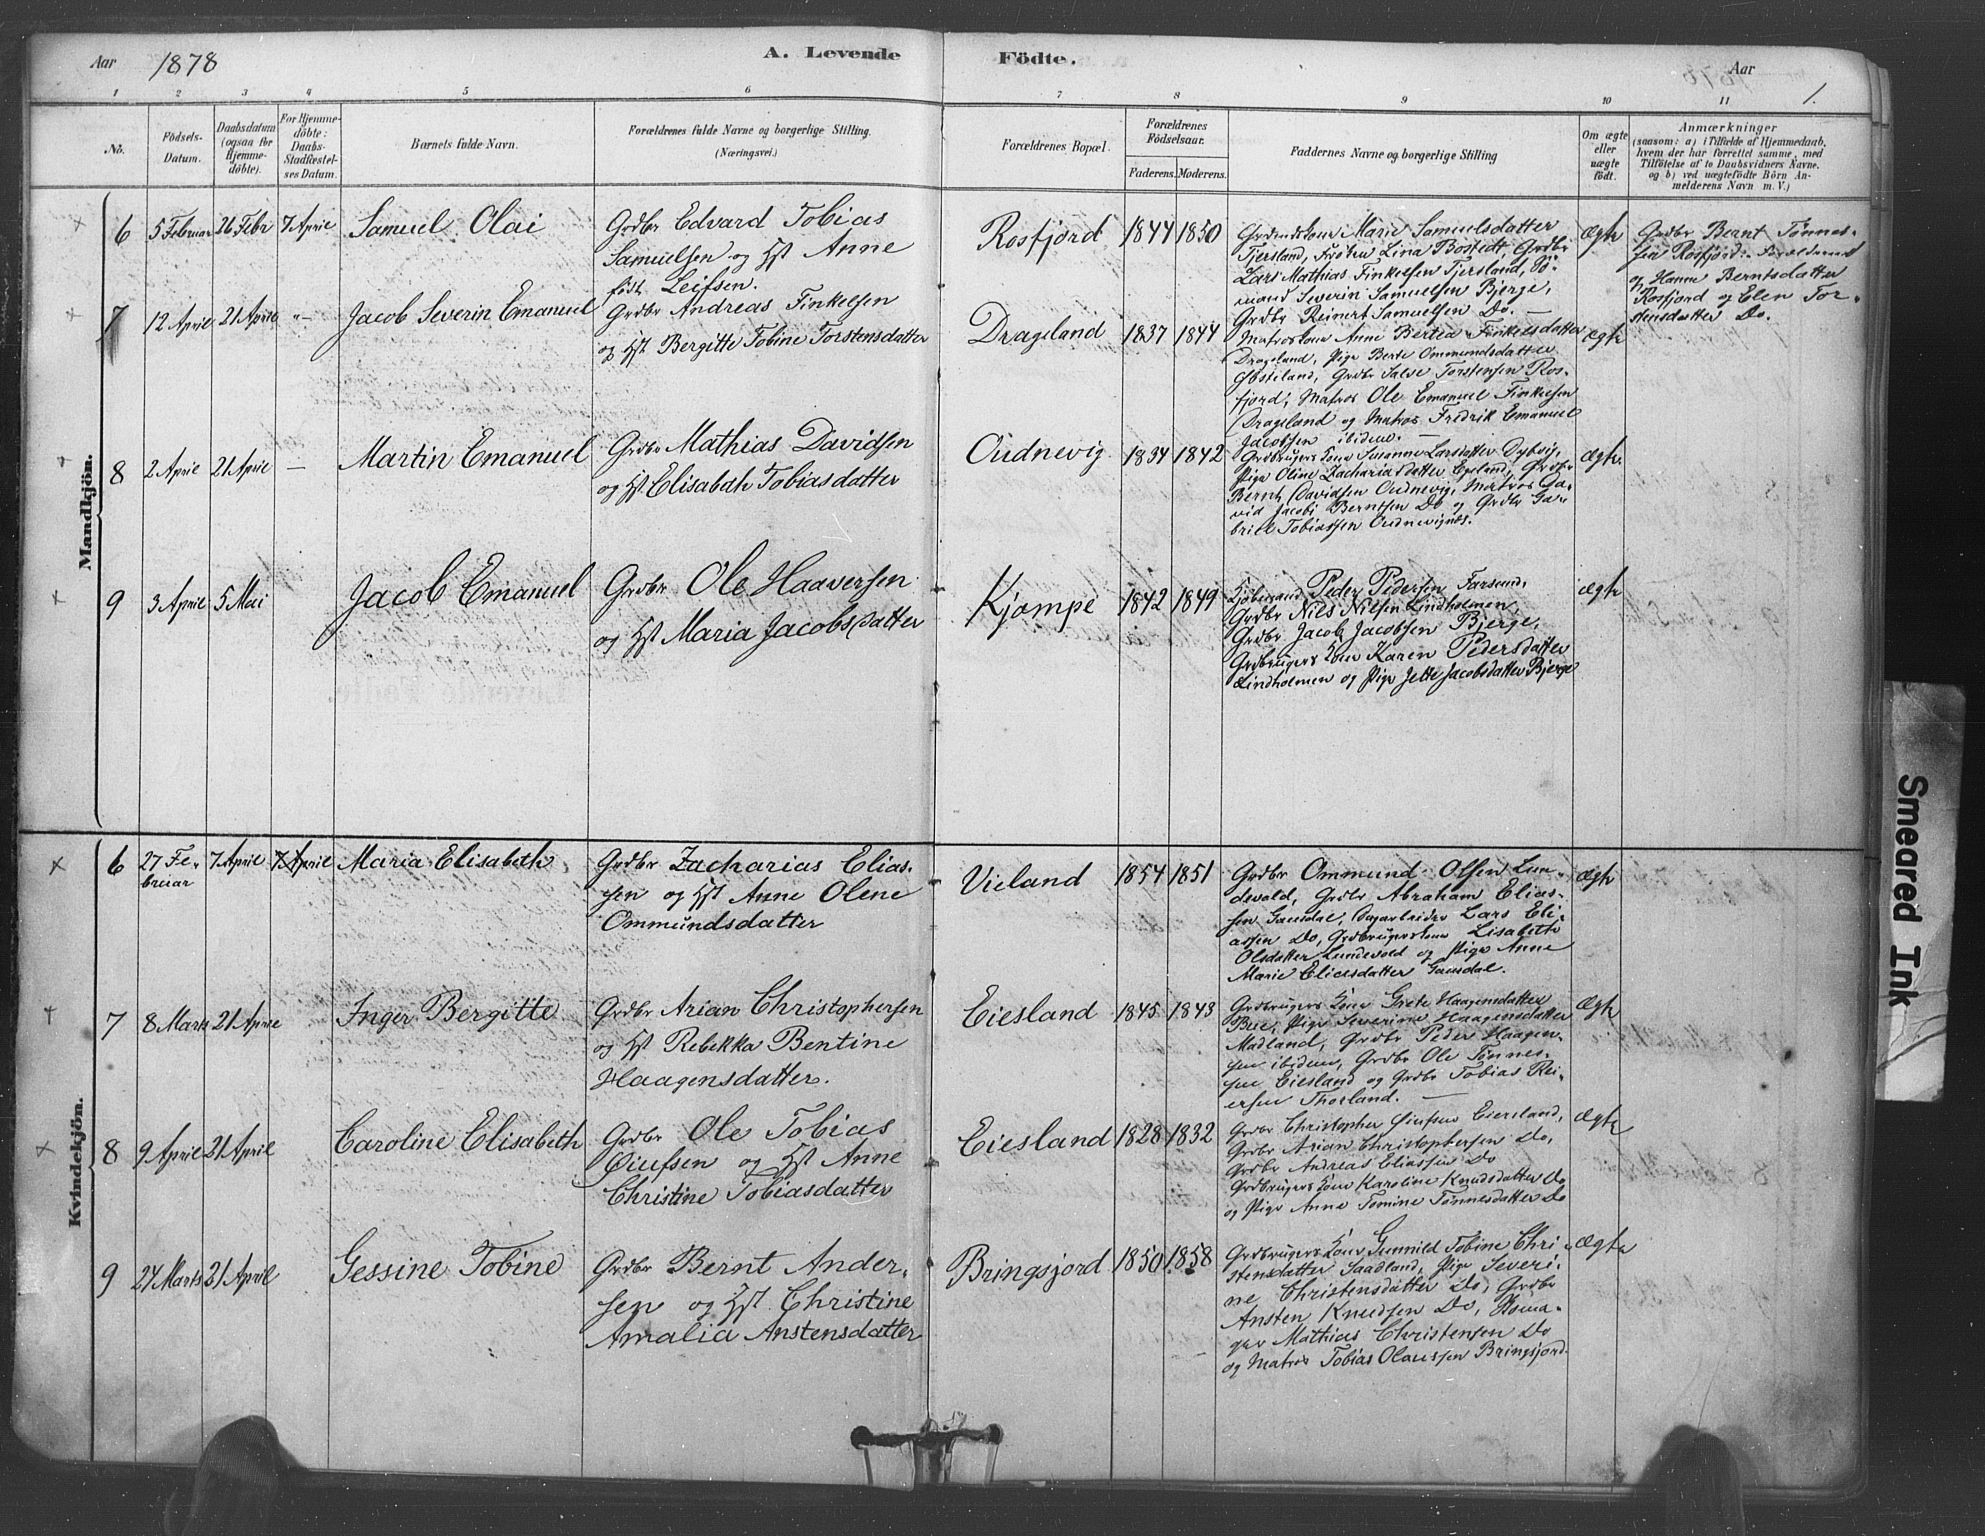 Aar 1878 A. Levende Födte. Aar 1.
1 2 3 4 5 6 7 8 9 10 11
No.
Födsels-
Datum.
Daabsdatum
(ogsaa for
Hjemme-
döbte).
For Hjemme-
döbte:
Daabs-
Stadfæstel-
ses Datum.
Barnets fulde Navn.
Forældrenes fulde Navne og borgerlige Stilling.
(Næringsvei.)
Forældrenes Bopæl.
Forældrenes
Födselsaar.
Faderens. Moderens.
Faddernes Navne og borgerlige Stilling
Om ægte
eller
uægte
födt.
Anmærkninger
(saasom: a) i Tilfælde af Hjemmedaab,
hvem der har forrettet samme, med
Tilföielse af to Daabsvidners Navne.
og b) ved uægtefödte Börn An-
melderens Navn m. V.)
Mandkjön.
6 5 Februar 26 Febr 7 April Samuel Olai
Grdbr Edvard Tobias
Samuelsen og Hst Anne
født Leifsen.
Rosfjord 1844 1850
Marie Samuelsdatter
Tjersland, Frøken Lina Bostedt, Grdbr
Lars Mathias Finkelsen Tjersland, Sø-
mand Severin Samuelsen Bjerge,
Grdbr Reinert Samuelsen Do. —
Ægte
Grdbr Bernt Tønnes-
sen Rosfjord.
og Hanne Berntsdatter
Rosfjord og Elen Tor-
stensdatter Do.
7 12 April 21 April -"- Jacob Severin Emanuel
Grdbr Andreas Finkelsen
og Hst Bergitte Tobine Torstensdatter
Drageland 1837 1844
Matroskone Anne Bertea Finkelsdatter
Drageland, Pige Berte Ommundsdatter
Grdbr Salve Torstensen Ros-
fjord, Matros Ole Emanuel Finkelsen
Drageland og Matros Fredrik Emanuel
Jacobsen ibidem. —
Ægte
8 2 April 21 April — Martin Emanuel
Grdbr Mathias Davidsen
og Hst Elisabeth Tobiasdatter
Oudnevig 1834 1842
Grdbrugers Kone Susanne Larsdatter Dybvig,
Pige Oline Zachariasdatter Epland, Grdbr
Bernt Davidsen Oudnevig, Matros Da-
vid Jacobi Berntsen Do og Grdbr Ga-
briel Tobiassen Oudnevignes.
Ægte.
9 3 April 5 Mai Jacob Emanuel
Grdbr Ole Haaversen
og Hst Maria Jacobsdatter
Kjømpe 1842 1849
Kjøbmand Peder Pedersen Farsund,
Grdbr Nils Nilsen Lindholmen,
Grdbr Jacob Jacobsen Bjerge,
Grdbrugers Kone Karen Pedersdatter
Lindholmen og Pige Jette Jacobsdatter Bjerge
Ægte
Kvindekjön.
6 27 Fe-
bruar
7 April 7 April Maria Elisabeth
Grdbr Zacharias Elias-
sen og Hst Anne Olene
Ommundsdatter
Vieland 1854 1851
Grdbr Ommund Olsen Lun-
devold, Grdbr Abraham Elias-
sen Gausdal, Dagarbeider Lars Eli-
assen Do, Grdbrugerkone Lisabeth
Olsdatter Lundevold og Pige Anne
Marie Eliasdatter Gausdal.
Ægte
7 8 Marts 21 April Inger Bergitte
Grdbr Arian Christophersen
og Hst Rebekka Bentine
Haagensdatter.
Eiesland 1845 1843
Grdbrugers Kone Grete Haagensdatter
Bue, Pige Severine Haagensdatter
Madland, Grdbr Peder Haagen-
sen ibidem, Grdbr Ole Tønnes-
sen Eiesland og Grdbr Tobias Rei-
ersen Thorland. —
Ægte
8 9 April 21 April Caroline Elisabeth
Grdbr Ole Tobias
Eiufsen og Hst Anne
Christine Tobiasdatter
Eiesland 1828 1832
Grdbr Christopher Eiufsen Eiersland,
Grdbr Arian Christophersen Do,
Grdbr Andreas Eliassen Do
Grdbrugers Kone Karoline Knudsdatter Do
og Pige Anne Tomine Tønnesdatter Do
Ægte
9 24 Marts 21 April Gessine Tobine
Grdbr Bernt Ander-
sen og Hst Christine
Amalia Anstensdatter
Bringsjord 1850 1858
Grdbrugers Kone Gunnild Tobine Chri-
stensdatter Saadland, Pige Severi-
ne Christensdatter Do, Grdbr
Ansten Knudsen Do, Skoma-
ger Mathias Christensen Do
og Matros Tobias Olaussen Bringsjord
Ægte
Smeared Ink